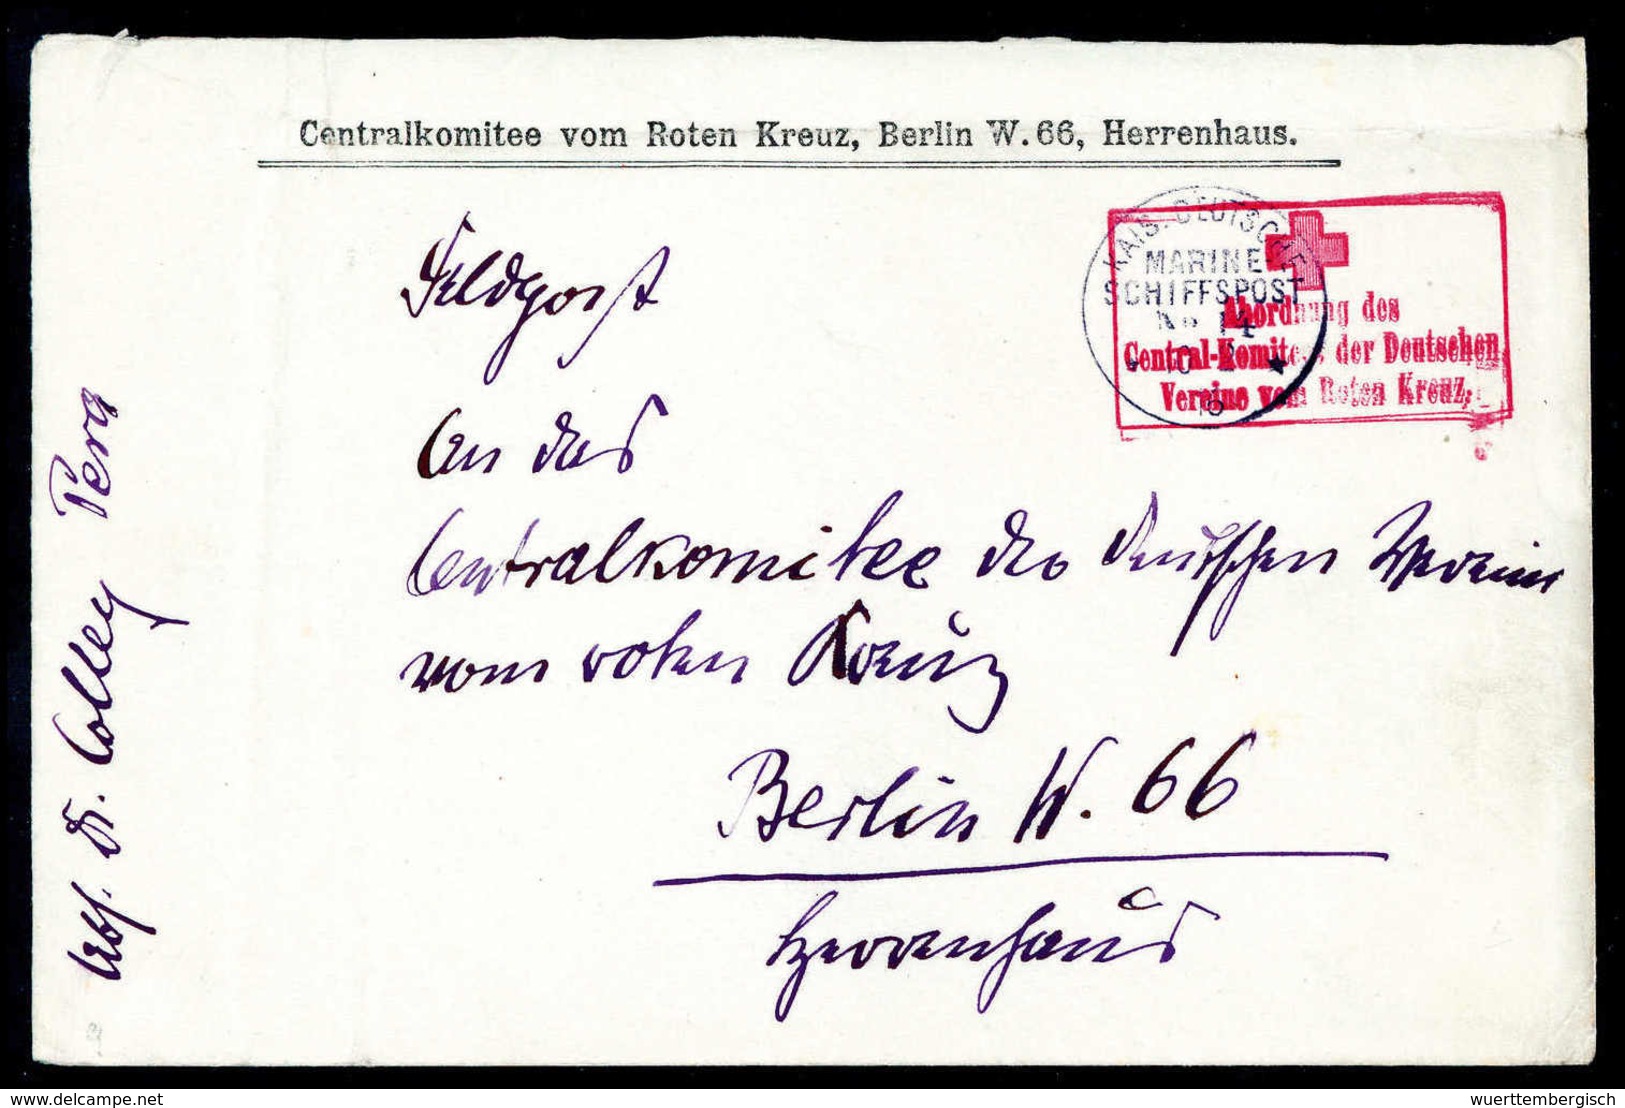 Centralkomitee vom Roten Kreuz, Berlin W. 66, Herrenhaus.
KAIS. DEUTSCHE
MARINE-
SCHIFFSPOST
No 14
Abordnung des
Central-Komitees der Deutschen
Vereine vom Roten Kreuz,
Feldpost
An das
Centralkomitee der deutschen Vereine
vom roten Kreuz
Berlin W. 66
Herrenhaus
Abs. Dr. Colley Pera
www.delcampe.net
wuerttembergisch